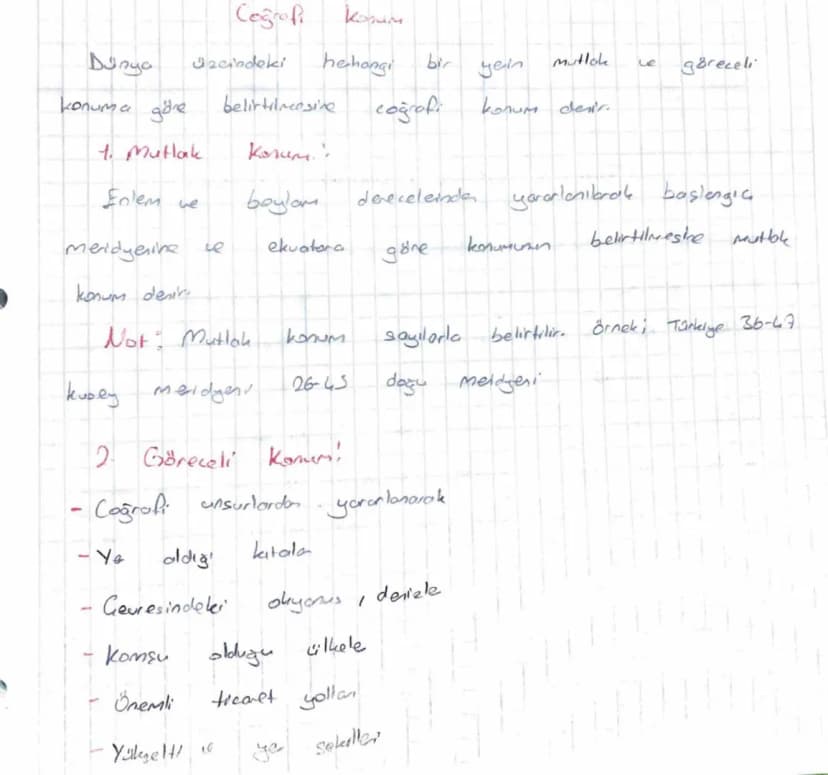 Coğrafi Konum
Dünya üzeindeki hehangi bir yein mutlak ve göreceli
konuma göre belirtilmesine coğrafi konum denir.
1. Mutlak Konum:
Enlem ve boylam derecelerinden yararlanılarak başlangıç
meridyenine ve ekvatora göre konumunun belirtilmesine mutlak
konum denir.
Not: Mutlak konum sayılarla belirtilir. örnek; Türkiye 36-42
kuzey meridyeni 26-45 doğu meridyeni
2. Göreceli Konum:
- Coğrafi unsurlardan yararlanarak
- Ye aldığı kıtala
- Çevresindeki okyanus, denizle
- Komşu olduğu ülkele
- Önemli ticaret yolları
- Yükselti ve ye şekilleri